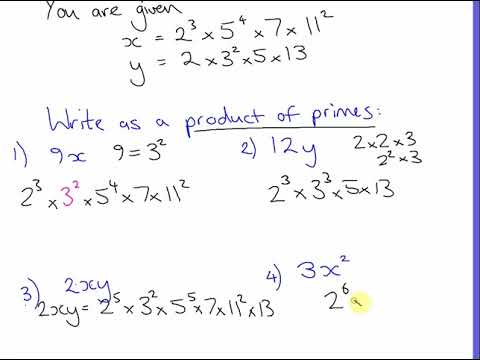 You are given
x = 2³ × 5⁴ × 7 × 11²
y = 2 × 3² × 5 × 13
Write as a product of primes:
1) 9x 9 = 3²
2³ × 3² × 5⁴ × 7 × 11²
2) 12y 2 × 2 × 3
2² × 3
2³ × 3³ × 5 × 13
3) 2xy
2xy = 2⁵ × 3² × 5⁵ × 7 × 11² × 13
4) 3x²
2⁶